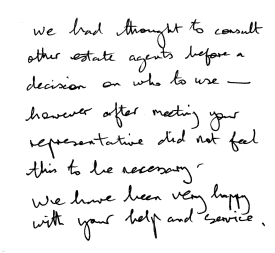 we had thought to consult
other estate agents before a
decision on who to use —
however after meeting your
representative did not feel
this to be necessary -
We have been very happy
with your help and service.